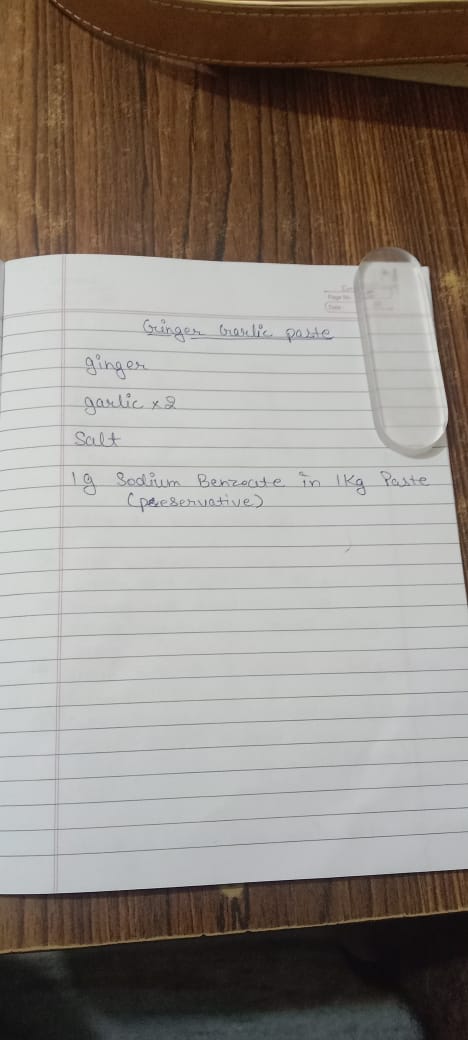 Page No.
Date
Ginger Garlic paste
ginger
garlic x 2
Salt
1g Sodium Benzoate in 1Kg Paste
(preservative)